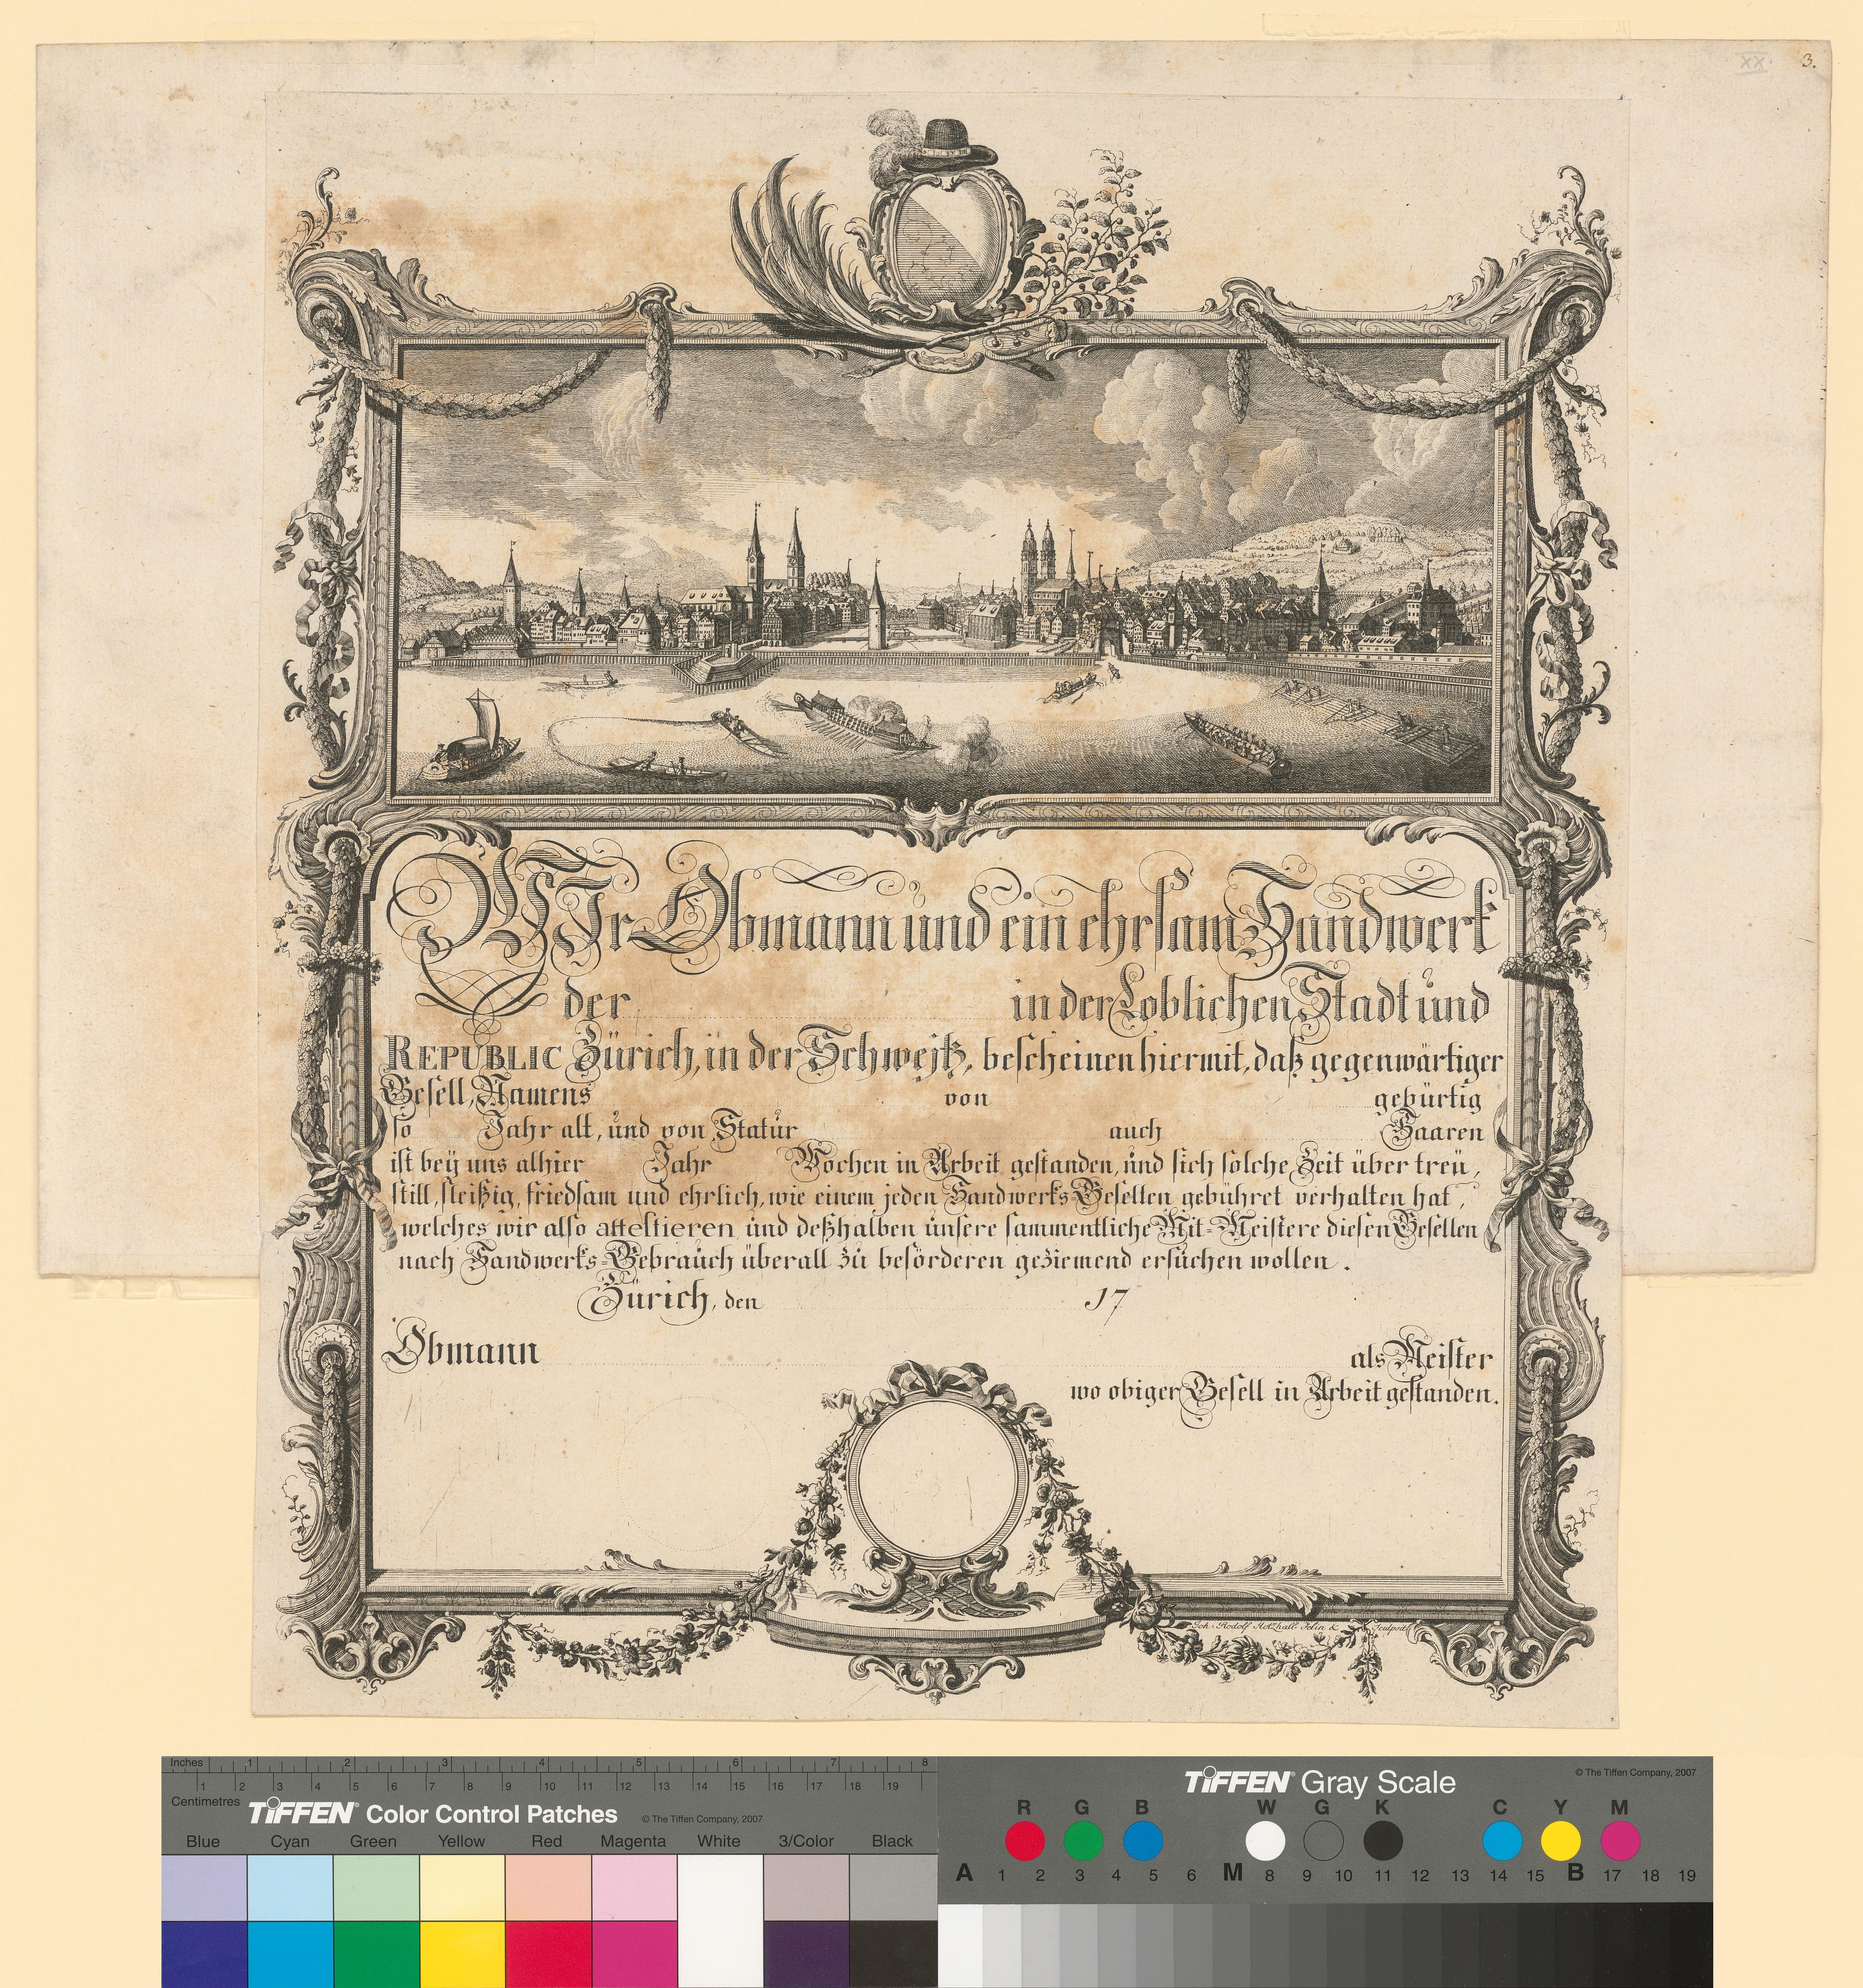 XX. 3.
WJr Obmann und ein ehrsam Handwerk
der in der Loblichen Stadt und
REPUBLIC Zürich, in der Schweitz, bescheinen hiermit, daß gegenwärtiger
Gesell, Namens von gebürtig
so Jahr alt, und von Statur auch Haaren
ist bey uns alhier Jahr Wochen in Arbeit gestanden, und sich solche Zeit über treu,
still, fleißig, friedsam und ehrlich, wie einem jeden Handwerks Gesellen gebühret verhalten hat,
welches wir also attestieren und deßhalben unsere sammentliche Mit-Meistere diesen Gesellen
nach Handwerks-Gebrauch überall zu beförderen geziemend ersuchen wollen.
Zürich, den 17
Obmann als Meister
wo obiger Gesell in Arbeit gestanden.
Joh. Rodolf Holzhalb Delin & Sculpsit
Inches 1 2 3 4 5 6 7 8
1 2 3 4 5 6 7 8 9 10 11 12 13 14 15 16 17 18 19
Centimetres
TIFFEN® Color Control Patches © The Tiffen Company, 2007
Blue Cyan Green Yellow Red Magenta White 3/Color Black
TIFFEN® Gray Scale © The Tiffen Company, 2007
R G B W G K C Y M
A 1 2 3 4 5 6 M 8 9 10 11 12 13 14 15 B 17 18 19